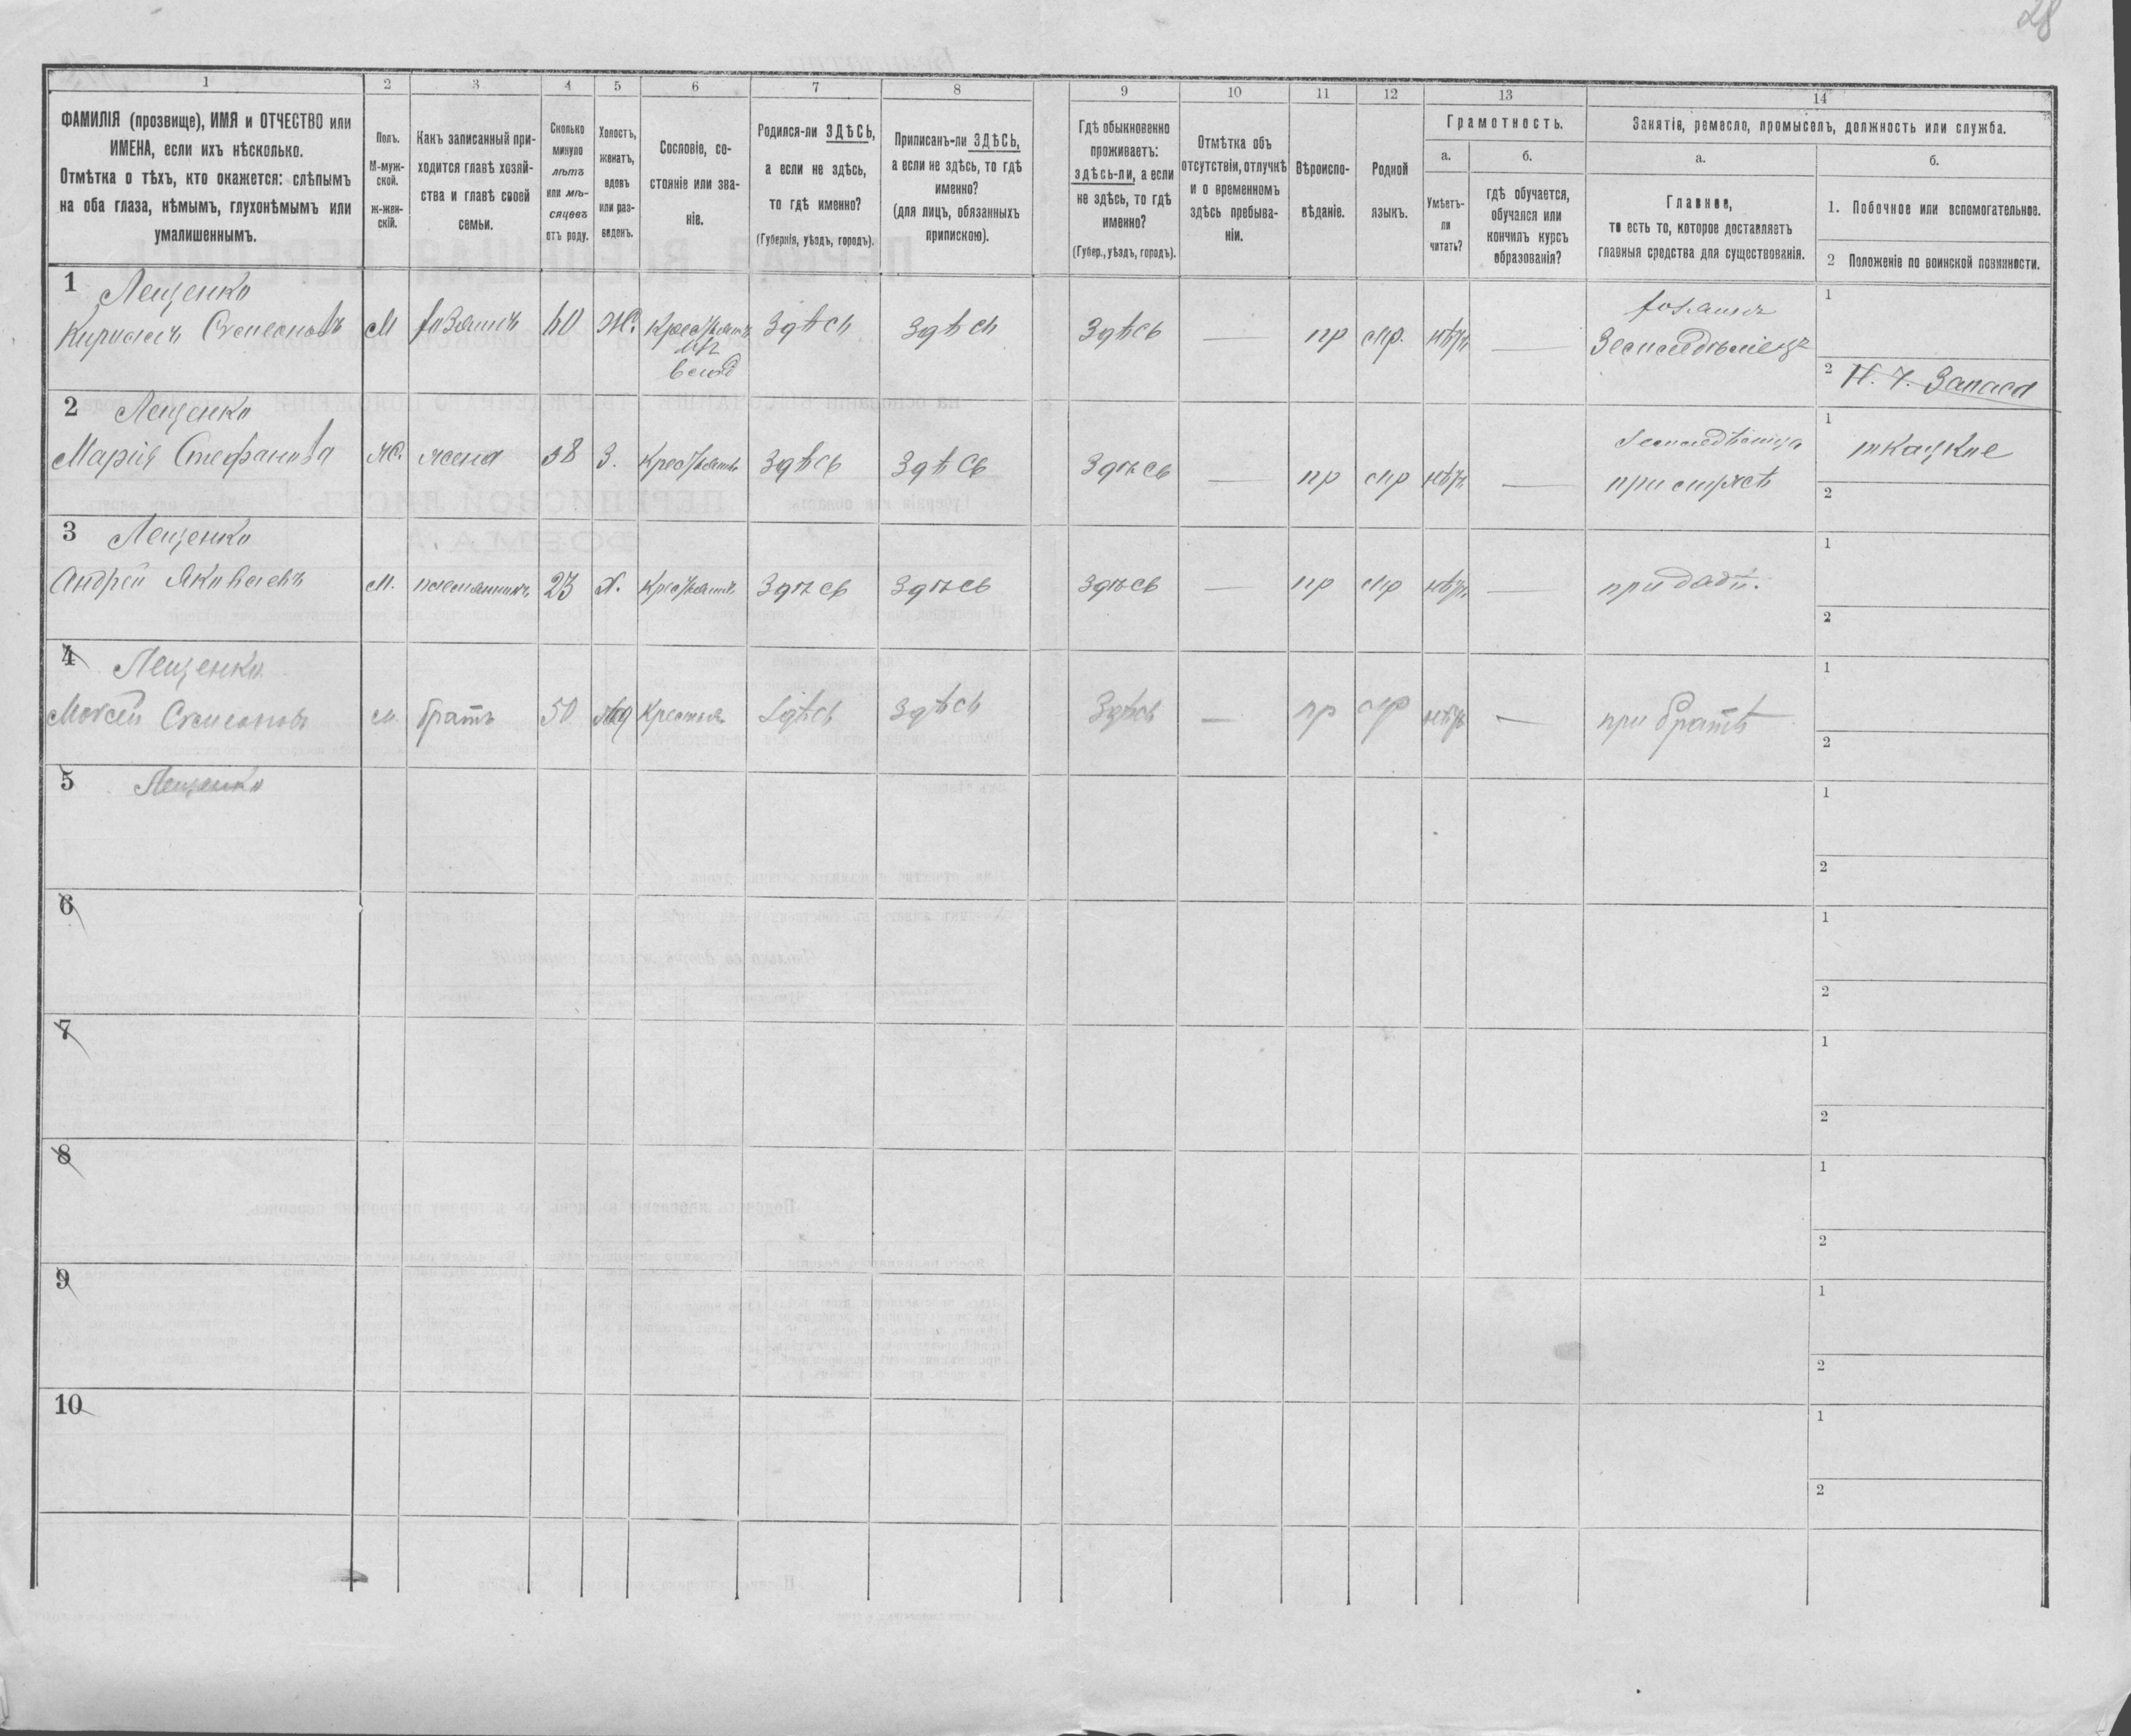 28
1 2 3 4 5 6 7 8 9 10 11 12 13 14
ФАМИЛІЯ (прозвище), ИМЯ и ОТЧЕСТВО или
ИМЕНА, если ихъ нѣсколько.
Отмѣтка о тѣхъ, кто окажется: слѣпымъ
на оба глаза, нѣмымъ, глухонѣмымъ или
умалишеннымъ.
Полъ.
М-муж-
ской.
Ж-жен-
скій.
Какъ записанный при-
ходится главѣ хозяй-
ства и главѣ своей
семьи.
Сколько
минуло
лѣтъ
или мѣ-
сяцевъ
отъ роду.
Холостъ,
женатъ,
вдовъ
или раз-
веденъ.
Сословіе, со-
стояніе или зва-
ніе.
Родился-ли ЗДѢСЬ,
а если не здѣсь,
то гдѣ именно?
(Губернія, уѣздъ, городъ).
Приписанъ-ли ЗДѢСЬ,
а если не здѣсь, то гдѣ
именно?
(для лицъ, обязанныхъ
припискою).
Гдѣ обыкновенно
проживаетъ:
здѣсь-ли, а если
не здѣсь, то гдѣ
именно?
(Губер., уѣздъ, городъ).
Отмѣтка объ
отсутствіи, отлучкѣ
и о временномъ
здѣсь пребыва-
ніи.
Вѣроиспо-
вѣданіе.
Родной
языкъ.
Грамотность.
а.
Умѣетъ-
ли
читать?
б.
гдѣ обучается,
обучался или
кончилъ курсъ
образованія?
Занятіе, ремесло, промыселъ, должность или служба.
а.
Главное,
то есть то, которое доставляетъ
главныя средства для существованія.
б.
1. Побочное или вспомогательное.
2 Положеніе по воинской повинности.
1 Лещенко
Кириллъ Семеоновъ М хозяинъ 60 Ж. Здѣсь Здѣсь Здѣсь — пр мр. нѣтъ —
хозяинъ
Земледѣлецъ
1
2 Н. Ч. Запаса
2 Лещенко
Марія Стефанова Ж. жена 58 З. Здѣсь Здѣсь Здѣсь — пр мр нѣтъ —
при мужѣ
1 ткацкое
2
3 Лещенко
Андрей Яковлевъ М. племянникъ 23 Х. Здѣсь Здѣсь Здѣсь — пр мр нѣтъ — при дядѣ.
1
2
4 Лещенко
Моисей Семеоновъ М. братъ 50 Здѣсь Здѣсь Здѣсь — пр мр нѣтъ — при братѣ
1
2
5 Лещенко
1
2
6
1
2
7
1
2
8
1
2
9
1
2
10
1
2